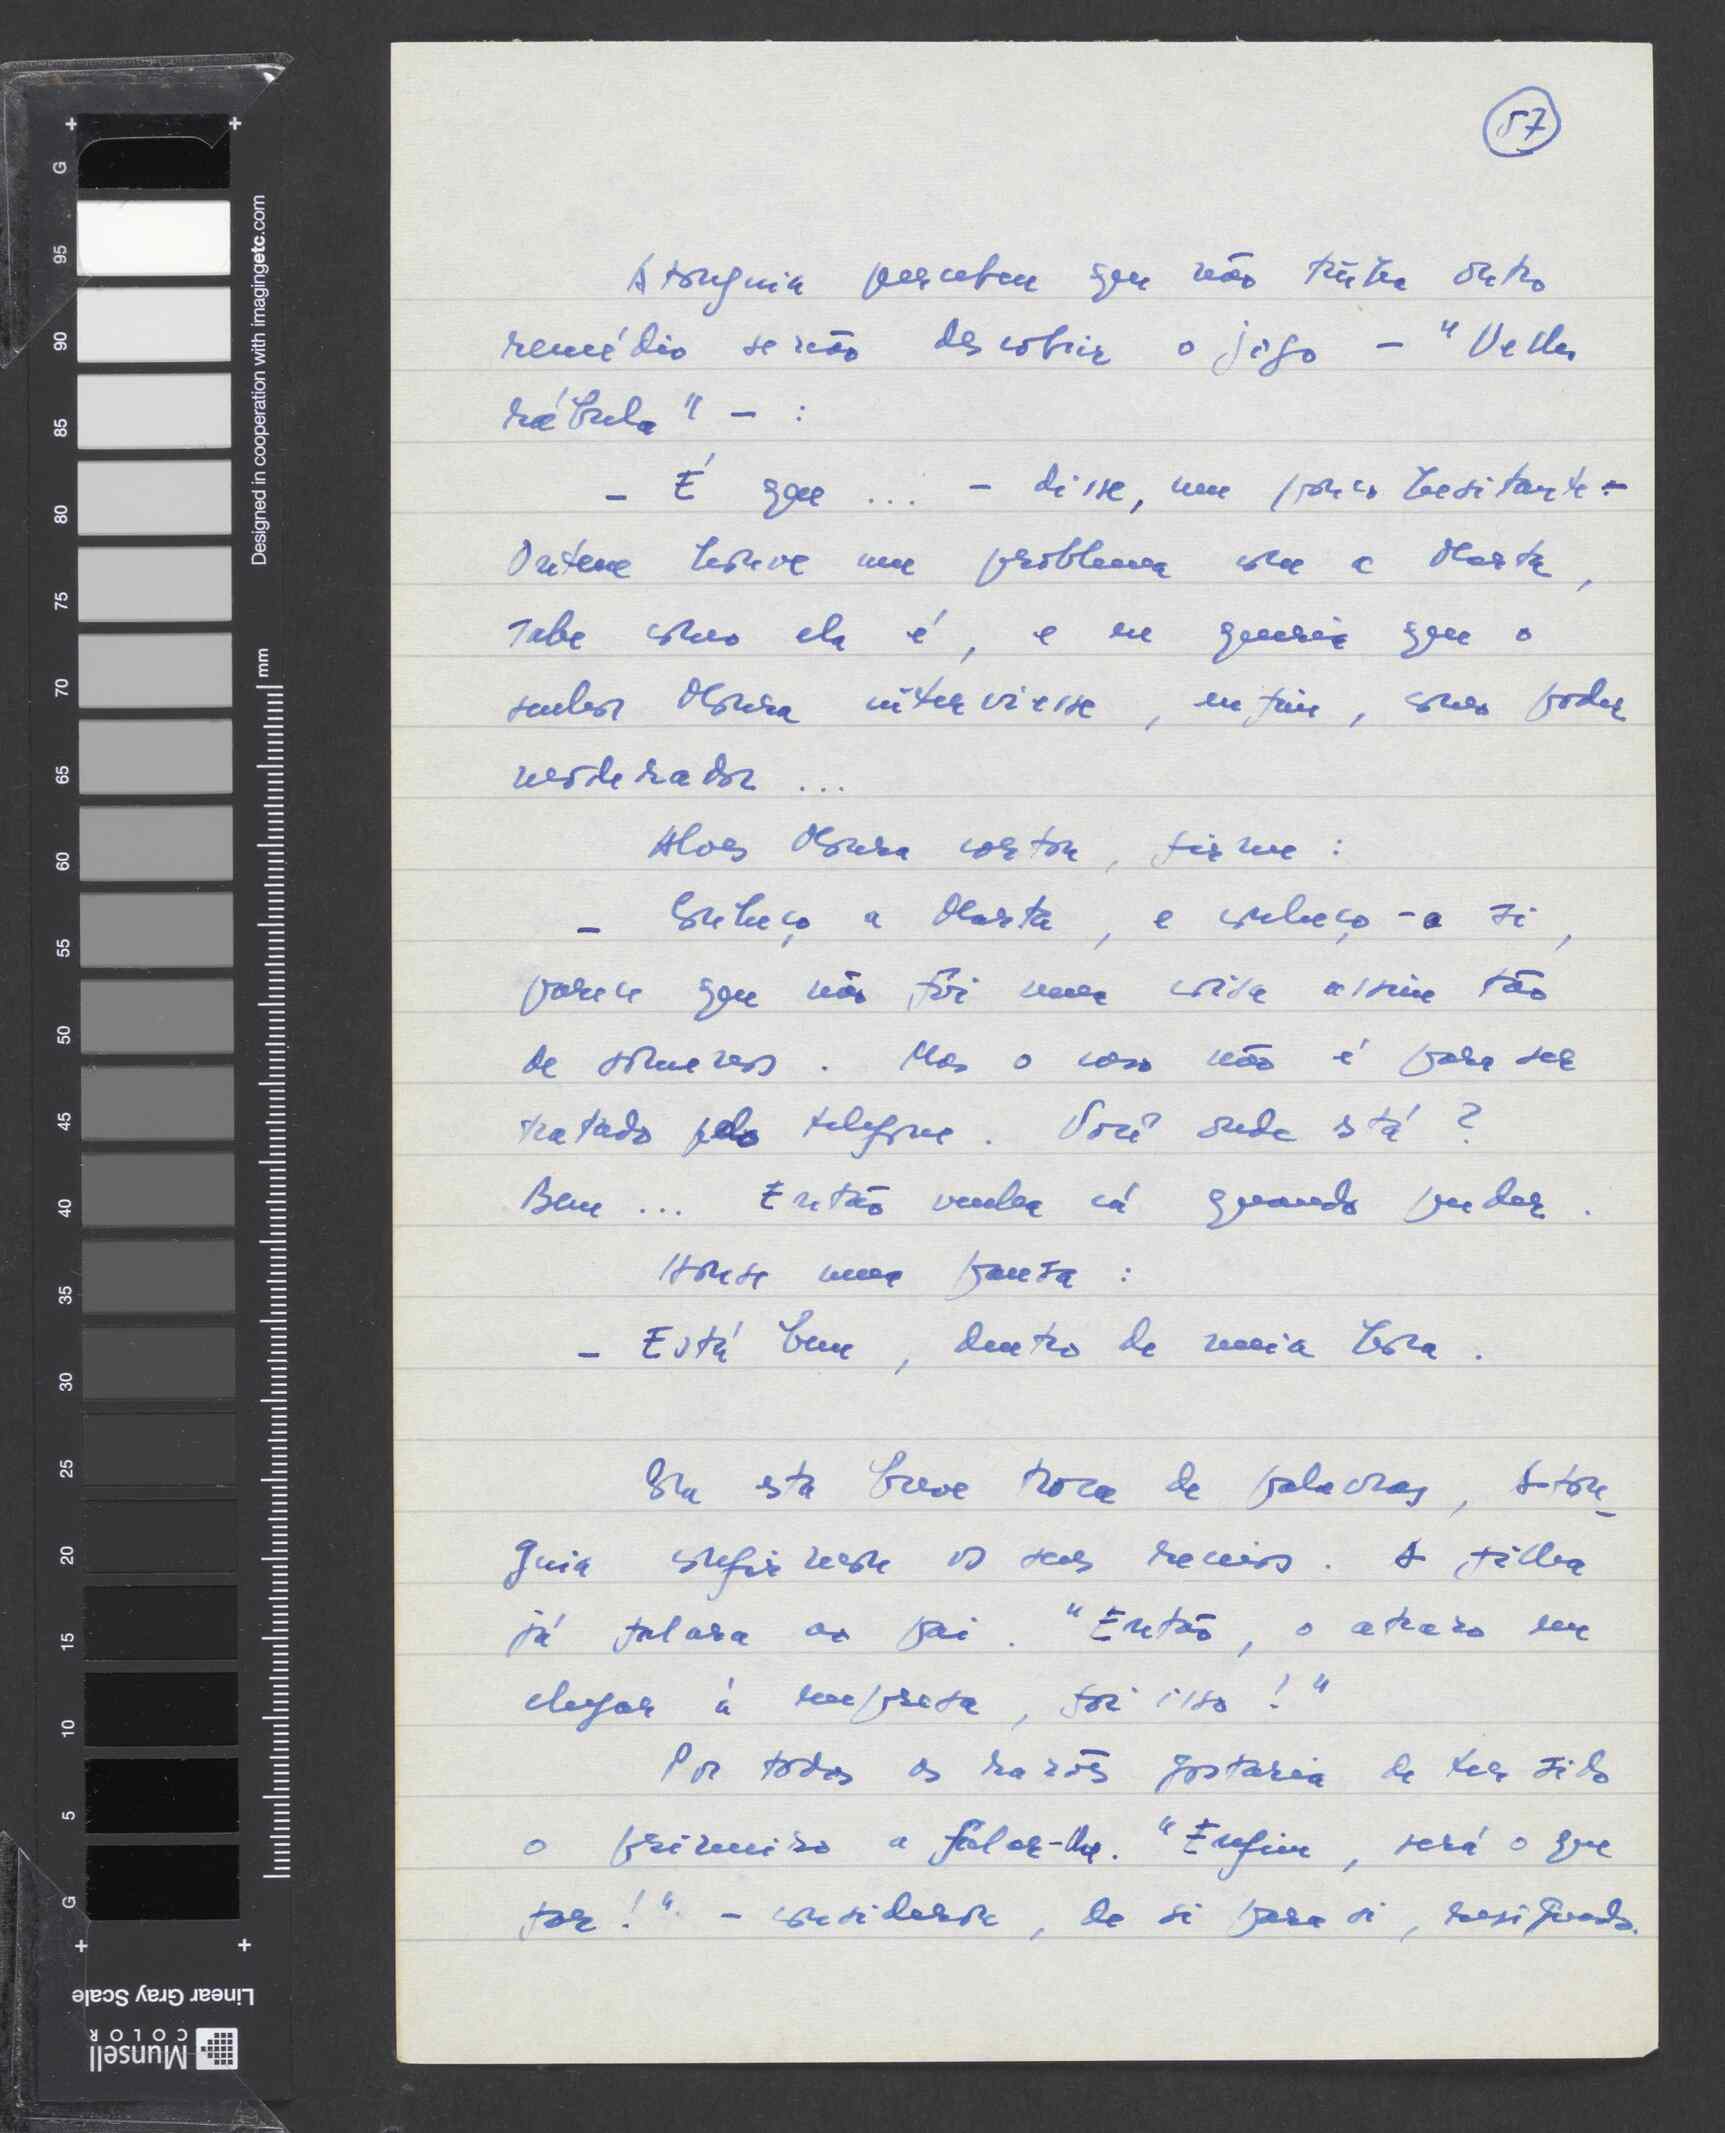 57
Atouguia percebeu que não tinha outro
remédio senão descobrir o jogo – "Velha
rábula" – :
– É que ... – disse, um pouco hesitante –
Ontem houve um problema com a Marta,
sabe como ela é, e eu queria que o
senhor Moura interviesse, enfim, como poder
moderador ...
Alves Moura cortou, firme :
– Conheço a Marta, e conheço-o a si,
parece que não foi uma coisa assim tão
de somenos. Mas o caso não é para ser
tratado pelo telefone. Você onde está ?
Bem ... Então venha cá quando puder.
Houve uma pausa :
– Está bem, dentro de meia hora.
Com esta breve troca de palavras, Atou-
guia confirmou os seus receios. A filha
já falara ao pai. "Então, o atraso em
chegar à empresa, foi isso !"
Por todas as razões gostaria de ter sido
o primeiro a falar-lhe. "Enfim, será o que
for !" – considerou, de si para si, resignado.
G
95
90
85
80
75
70
65
60
55
50
45
40
35
30
25
20
15
10
5
G
Designed in cooperation with imagingetc.com
mm
Linear Gray Scale
Munsell
COLOR